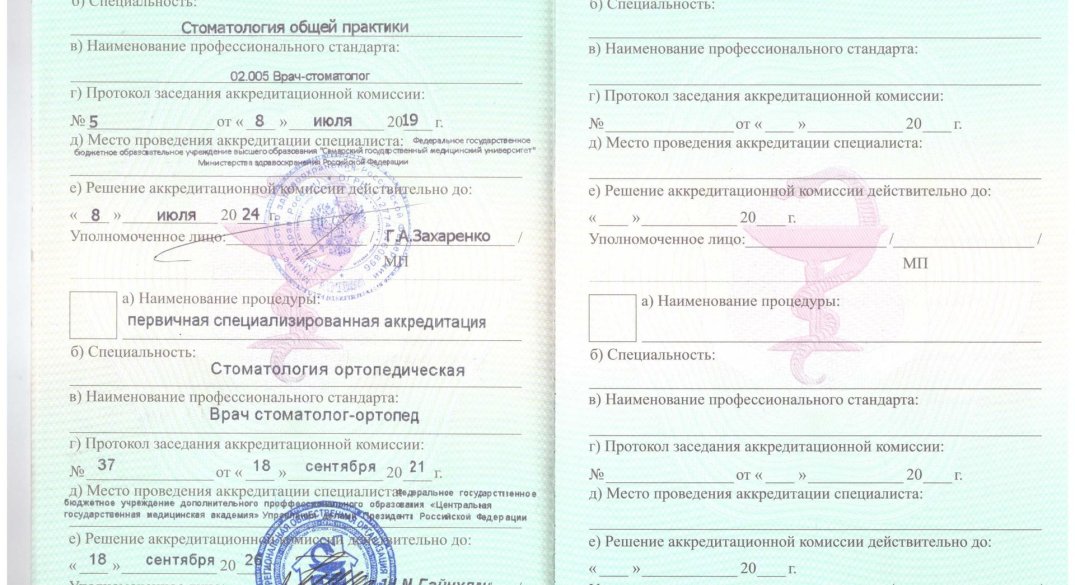 б) Специальность:
Стоматология общей практики
в) Наименование профессионального стандарта:
02.005 Врач-стоматолог
г) Протокол заседания аккредитационной комиссии:
№ 5 от « 8 » июля 2019 г.
д) Место проведения аккредитации специалиста: Федеральное государственное
бюджетное образовательное учреждение высшего образования "Самарский государственный медицинский университет"
Министерства здравоохранения Российской Федерации
е) Решение аккредитационной комиссии действительно до:
« 8 » июля 20 24 г.
Уполномоченное лицо: / Г.А.Захаренко /
МП
а) Наименование процедуры:
первичная специализированная аккредитация
б) Специальность:
Стоматология ортопедическая
в) Наименование профессионального стандарта:
Врач стоматолог-ортопед
г) Протокол заседания аккредитационной комиссии:
№ 37 от « 18 » сентября 20 21 г.
д) Место проведения аккредитации специалиста: Федеральное государственное
бюджетное учреждение дополнительного проффессионального образования «Центральная
государственная медицинская академия» Управления делами Президента Российской Федерации
е) Решение аккредитационной комиссии действительно до:
« 18 » сентября 20 26
Уполномоченное
б) Специальность:
в) Наименование профессионального стандарта:
г) Протокол заседания аккредитационной комиссии:
№ от « » 20 г.
д) Место проведения аккредитации специалиста:
е) Решение аккредитационной комиссии действительно до:
« » 20 г.
Уполномоченное лицо: / /
МП
а) Наименование процедуры:
б) Специальность:
в) Наименование профессионального стандарта:
г) Протокол заседания аккредитационной комиссии:
№ от « » 20 г.
д) Место проведения аккредитации специалиста:
е) Решение аккредитационной комиссии действительно до:
« » 20 г.